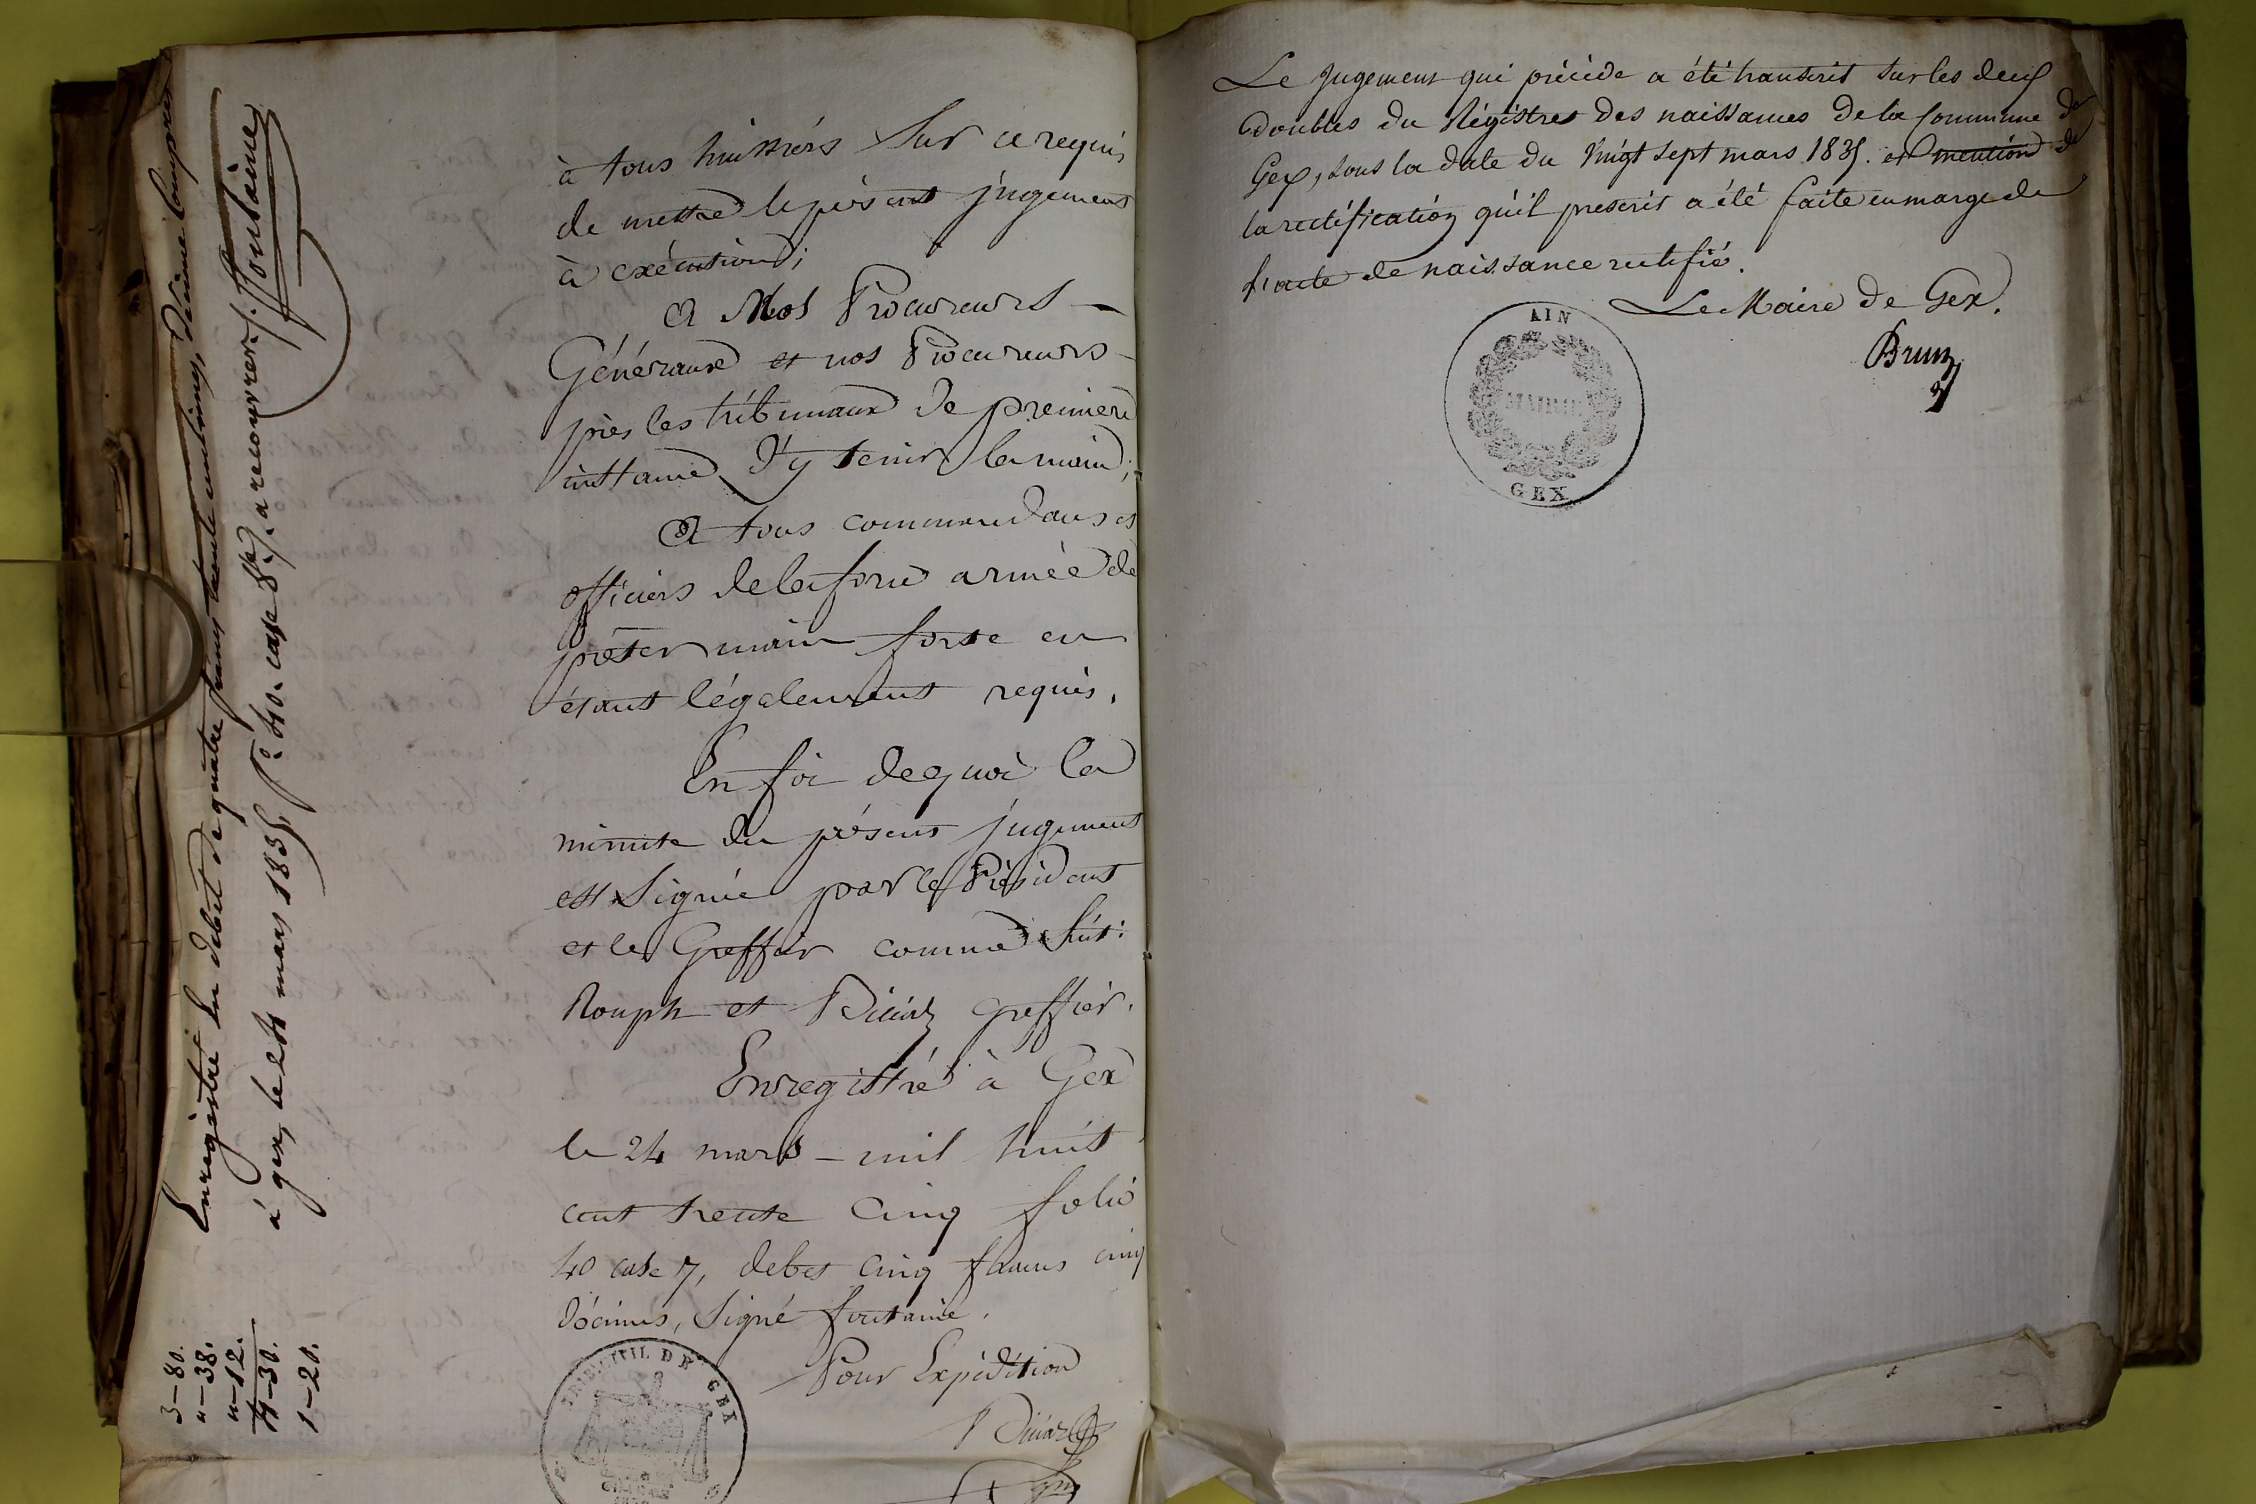 à tous huissiers Sur ce requis
de mettre le présent jugement
à exécution;
A Nos Procureurs
Généraux et nos Procureurs
près les tribunaux de première
instance d'y tenir la main;
A tous commandans et
officiers de la force armée de
prêter main forte en
étant légalement requis.
En foi de quoi la
minute du présent jugement
est signée par le Président
et le Greffier comme suit:
Rouph et greffier.
Enregistré à Gex
le 24 mars mil huit
cent trente cinq folio
40 case 7, debet cinq francs cinq
décimes, signé fontaine.
Pour Expédition
TRIB. CIVIL DE GEX
Enregistré En débet de quatre francs trente centimes, décime compris
à gex, le 24 mars 1835, f° 40. case 8. à recouvrer. Fontaine
3-80.
"-38.
"-12.
4-30.
1-20.
Le Jugement qui précède a été transcrit sur les deux
doubles du Régistres des naissances de la Commune de
Gex, sous la date du vingt sept mars 1835. et mention de
la rectification qu'il prescrit a été faite en marge de
l'acte de naissance rectifié.
Le Maire de Gex.
AIN
MAIRIE
GEX